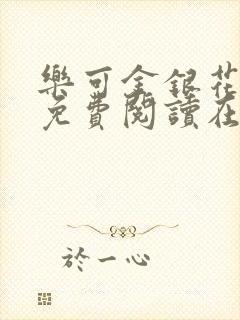 樂可金銀花
免費閱讀在
於一心